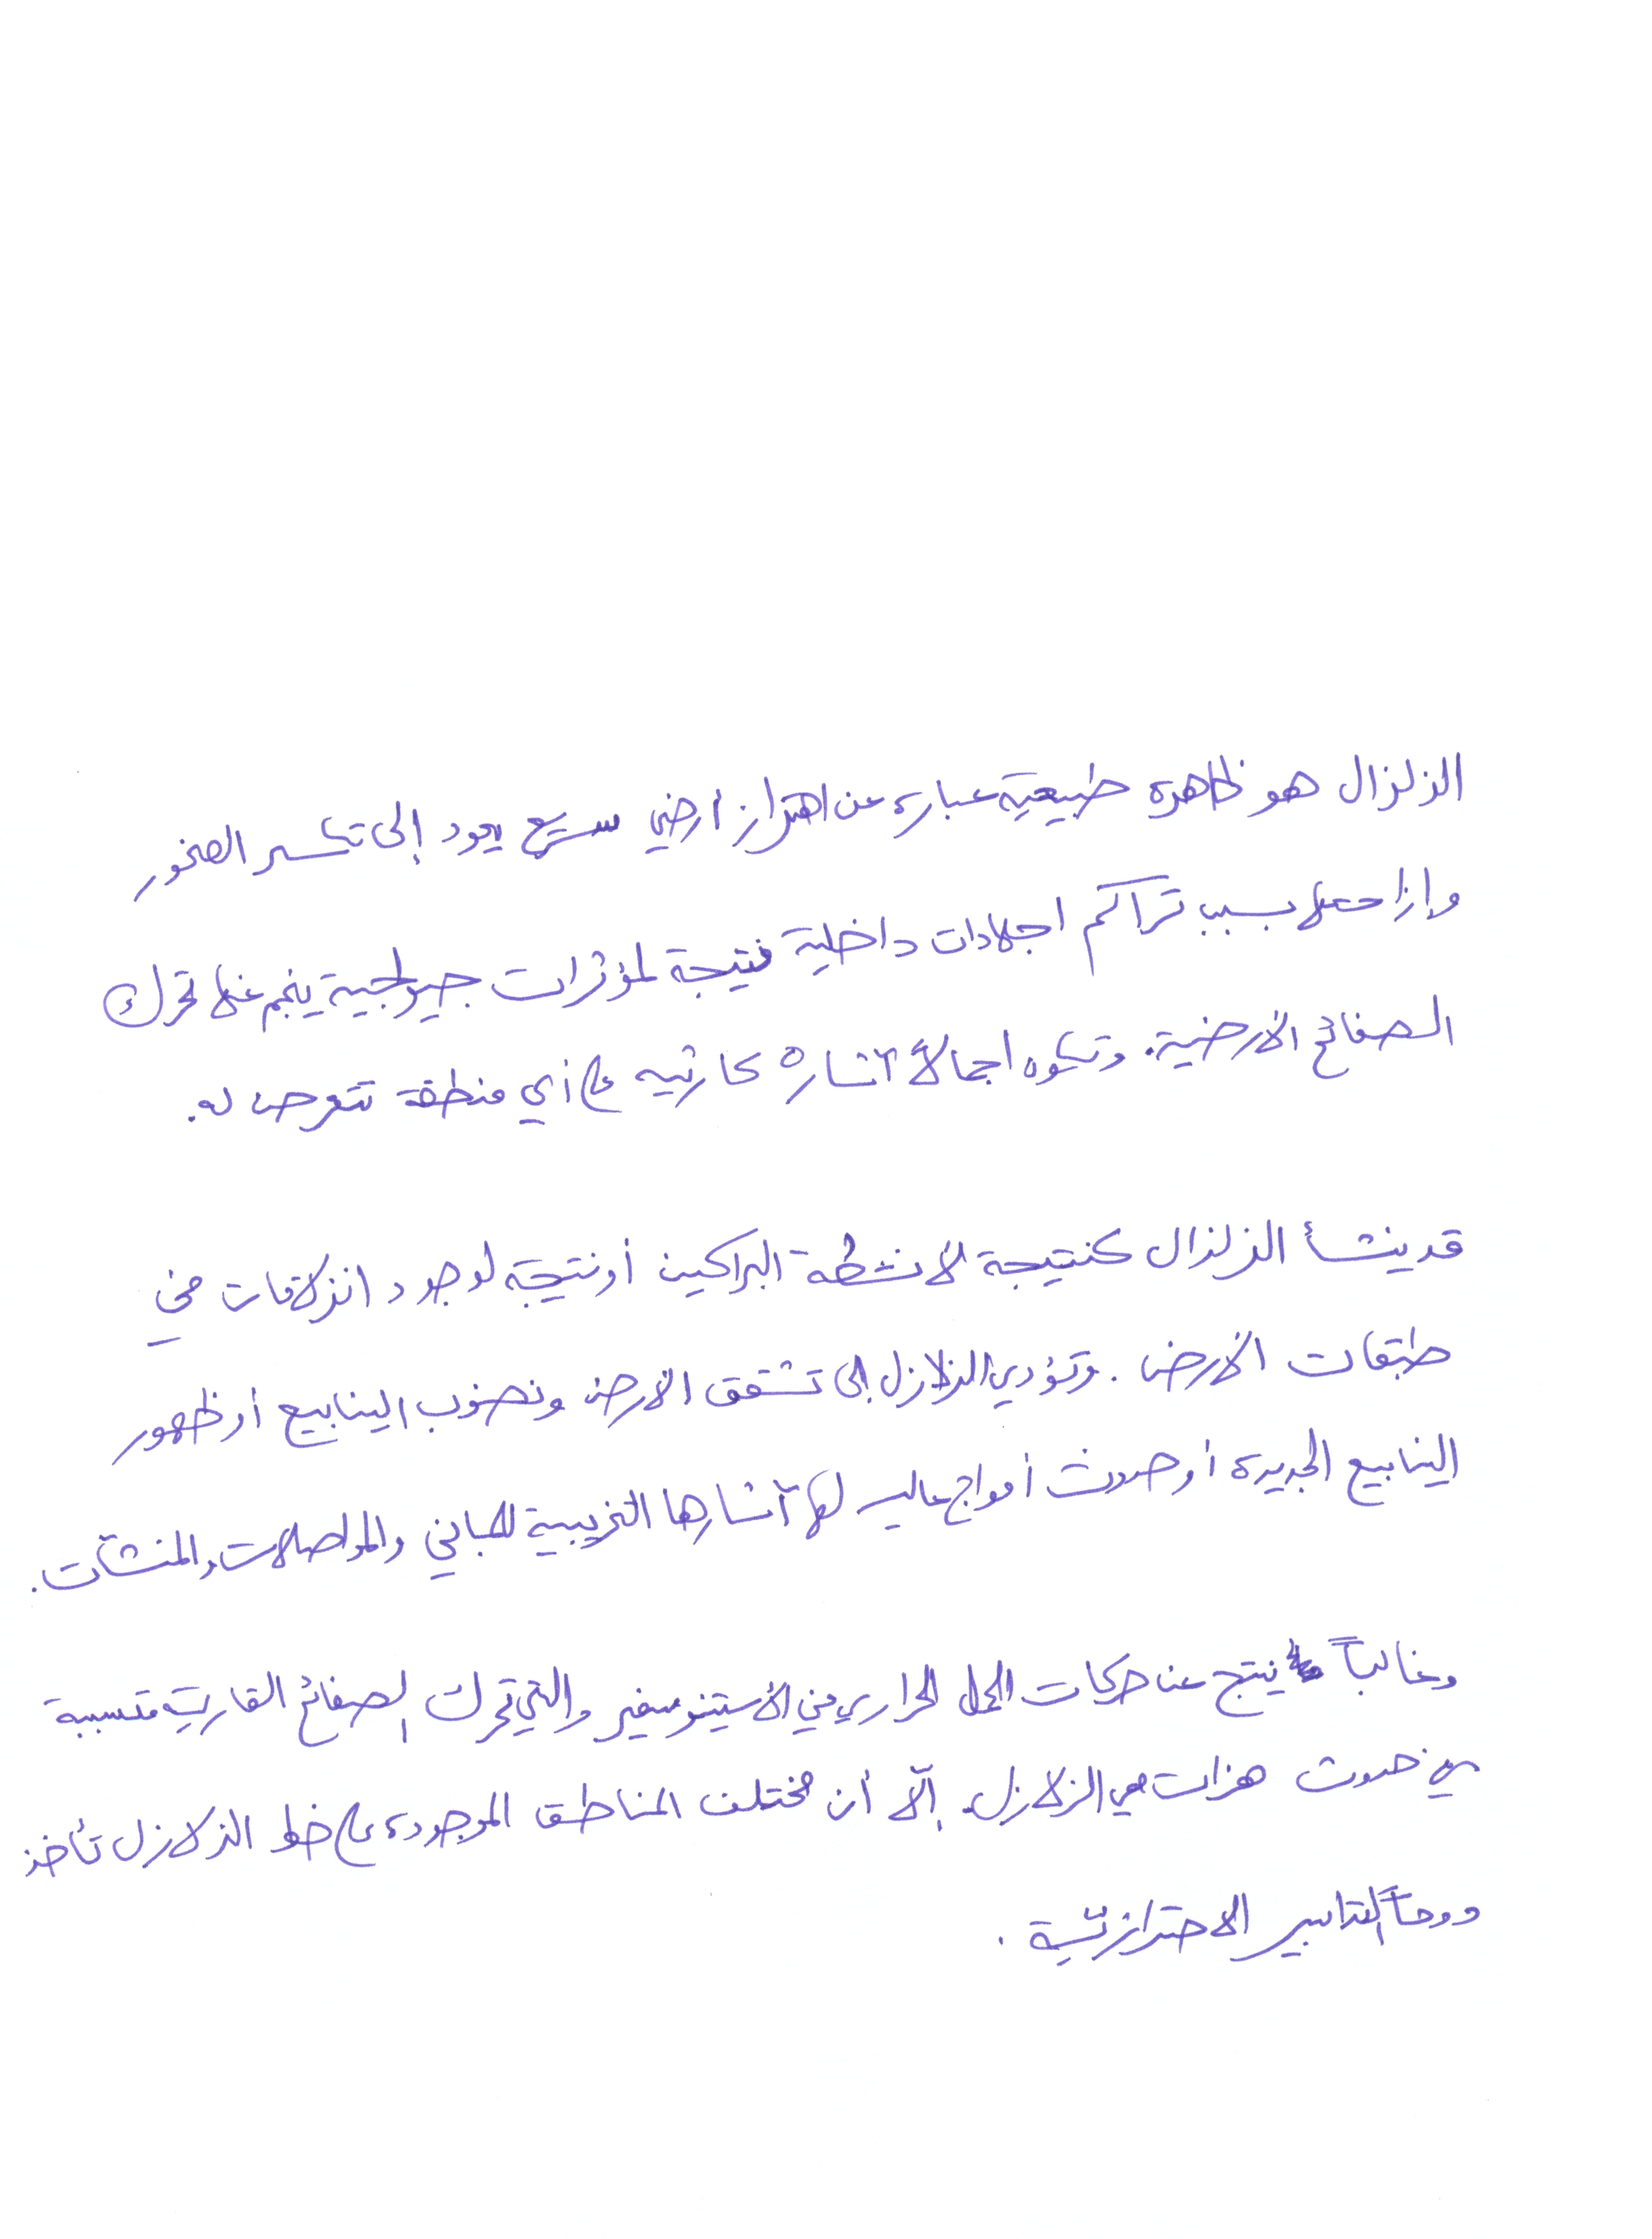 الزلزال هو ظاهرة طبيعية عبارة عن اهتزاز أرضي سريع يعود إلى تكسر الصخور
وإزاحتها بسبب تراكم اجهادات داخلية نتيجة لمؤثرات جيولجية ينجم عنها تحرك
الصفائح الأرضية. وتكون اجمالاً آثاره كارثيه على أي منطقة تتعرض له.
قد ينشأ الزلزال كنتيجة لأنشطة البراكين أو نتيجة لوجود انزلاقات في
طبقات الأرض. وتؤدي الزلازل إلى تشقق الأرض ونضوب الينابيع أو ظهور
الينابيع الجديدة أو حدوث أمواج عاليه لها آثارها التخريبية للمباني والمواصلات والمنشآت.
وغالباً ينتج عن حركات الحمل الحراري في الأستينوسفير والتي تحرك الصفائح القارية متسببة
في حدوث هزات هي الزلازل. إلّا أن مختلف المناطق الموجودة على خط الزلازل تأخذ
دوماً التدابير الاحترازيّة.